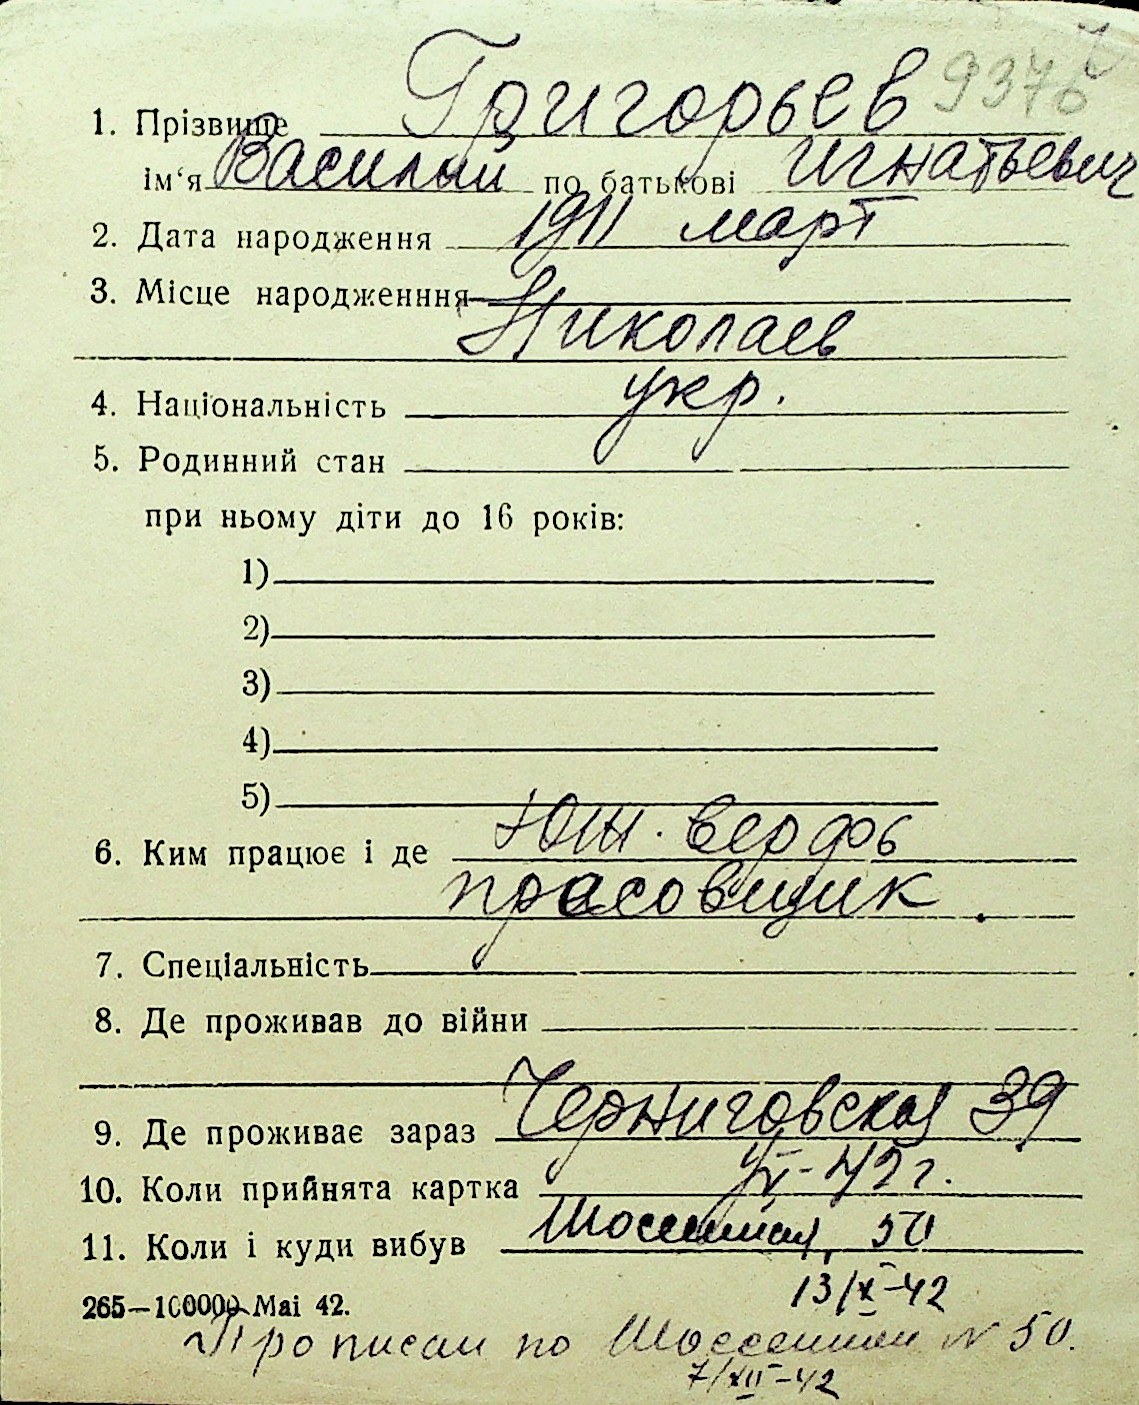 9376
1. Прізвище Григорьев
ім‘я Василий по батькові Игнатьевич
2. Дата народження 1911 март
3. Місце народженння
Николаев
4. Національність укр.
5. Родинний стан
при ньому діти до 16 років:
1)
2)
3)
4)
5)
6. Ким працює і де Юж. верфь
прасовщик.
7. Спеціальність
8. Де проживав до війни
9. Де проживає зараз Черниговская 39
10. Коли прийнята картка -42 г.
11. Коли і куди вибув Шоссейная, 50
13/X-42
265—100000 Mai 42.
Прописан по Шоссейной N 50.
7/XII-42